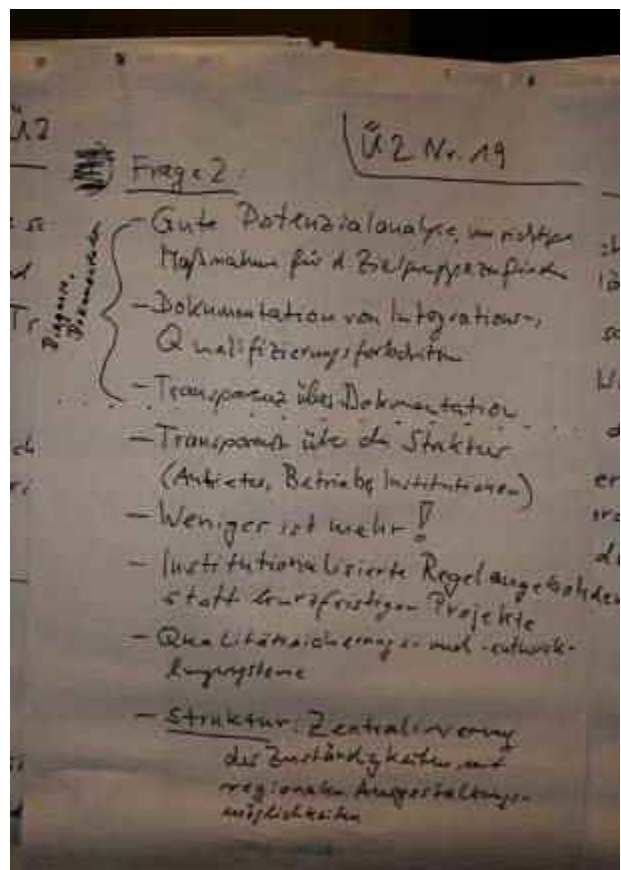 Ü2
Ü2 Nr. 19
Frage 2:
Diagnose,
Dokumentation
- Gute Potenzialanalyse, um richtige
Maßnahme für d. Zielgruppe zu finden
- Dokumentation von Integrations-,
Qualifizierungsfortschritten
- Transparenz über Dokumentation
- Transparenz über die Struktur
(Anbieter, Betriebe, Institutionen)
- Weniger ist mehr!
- Institutionalisierte Regelangebote
statt kurzfristigen Projekte
- Qualitätssicherungs- und -entwick-
lungssysteme
- Struktur: Zentralisierung
der Zuständigkeiten mit
regionalen Ausgestaltungs-
möglichkeiten